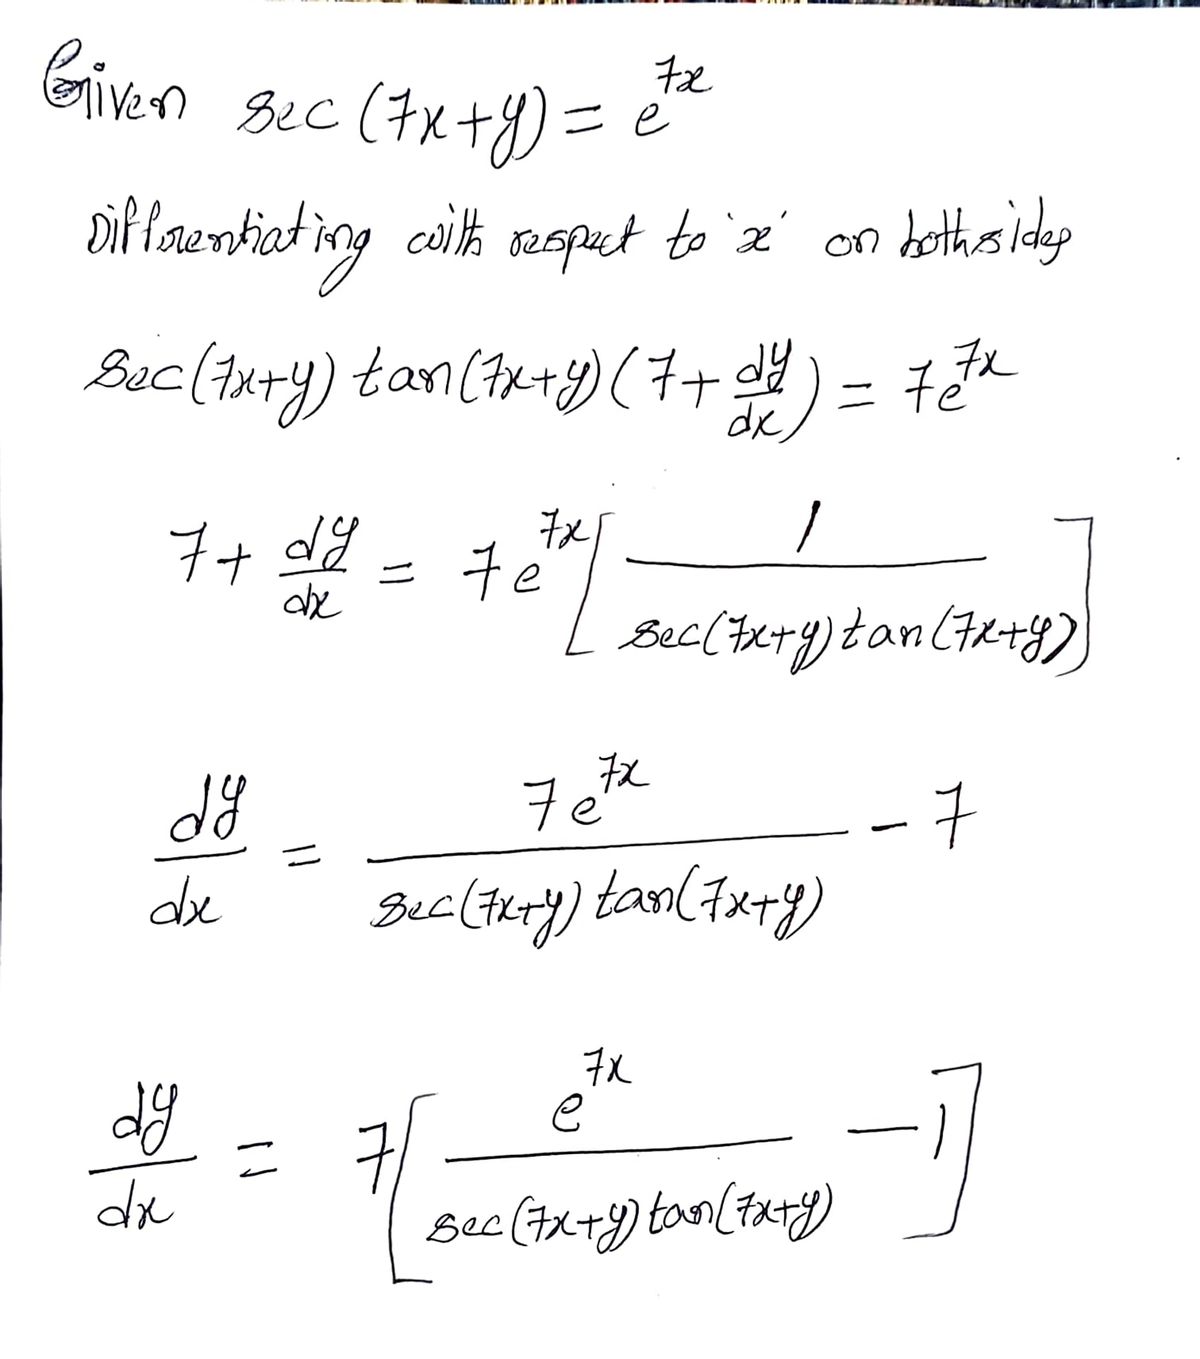 Given sec(7x+y) = e^{7x}
Differentiating with respect to 'x' on both sides
sec(7x+y) tan(7x+y) (7 + dy/dx) = 7e^{7x}
7 + dy/dx = 7e^{7x} [1 / sec(7x+y) tan(7x+y)]
dy/dx = 7e^{7x} / sec(7x+y) tan(7x+y) - 7
dy/dx = 7[e^{7x} / sec(7x+y) tan(7x+y) - 1]